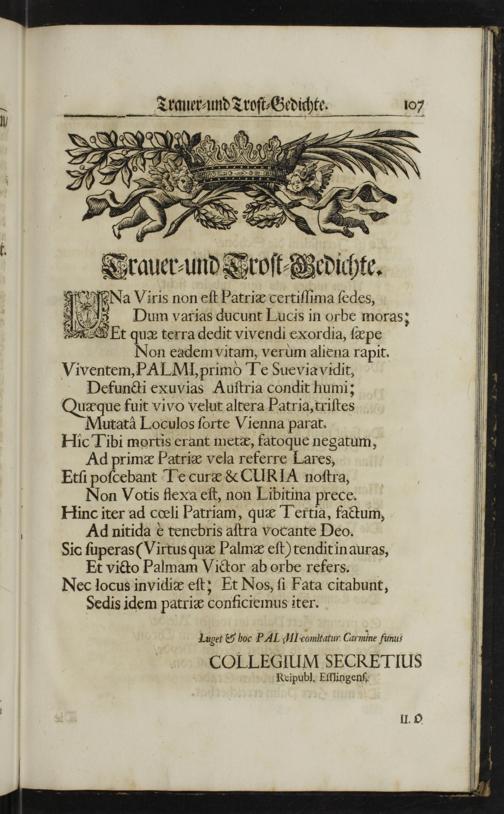 Trauer-und Trost-Gedichte. 107
Trauer-und Trost-Gedichte.
UNa Viris non eſt Patriæ certiſſima ſedes,
Dum varias ducunt Lucis in orbe moras;
Et quæ terra dedit vivendi exordia, ſæpe
Non eadem vitam, verùm aliena rapit.
Viventem, PALMI, primò Te Suevia vidit,
Defuncti exuvias Auſtria condit humi;
Quæque fuit vivo velut altera Patria, triſtes
Mutatâ Loculos ſorte Vienna parat.
Hic Tibi mortis erant metæ, fatoque negatum,
Ad primæ Patriæ vela referre Lares,
Etſi poſcebant Te curæ & CURIA noſtra,
Non Votis flexa eſt, non Libitina prece.
Hinc iter ad cœli Patriam, quæ Tertia, factum,
Ad nitida è tenebris aſtra vocante Deo.
Sic ſuperas (Virtus quæ Palmæ eſt) tendit in auras,
Et victo Palmam Victor ab orbe refers.
Nec locus invidiæ eſt; Et Nos, ſi Fata citabunt,
Sedis idem patriæ conficiemus iter.
Luget & hoc PALMI comitatur Carmine funus
COLLEGIUM SECRETIUS
Reipubl. Eſſlingenſ.
II. O